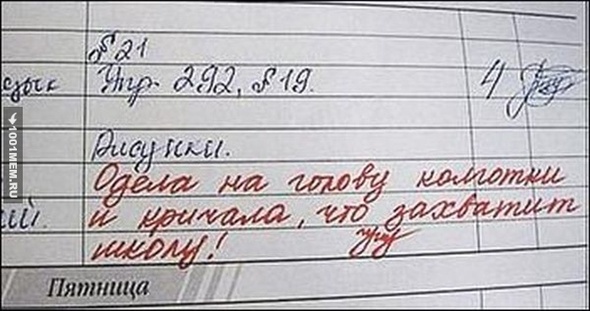 § 21
Упр. 292, § 19.
язык
4
Рисунки.
Одела на голову колготки
и кричала, что захватит
ий.
школу!
Пятница
1001MEM.RU